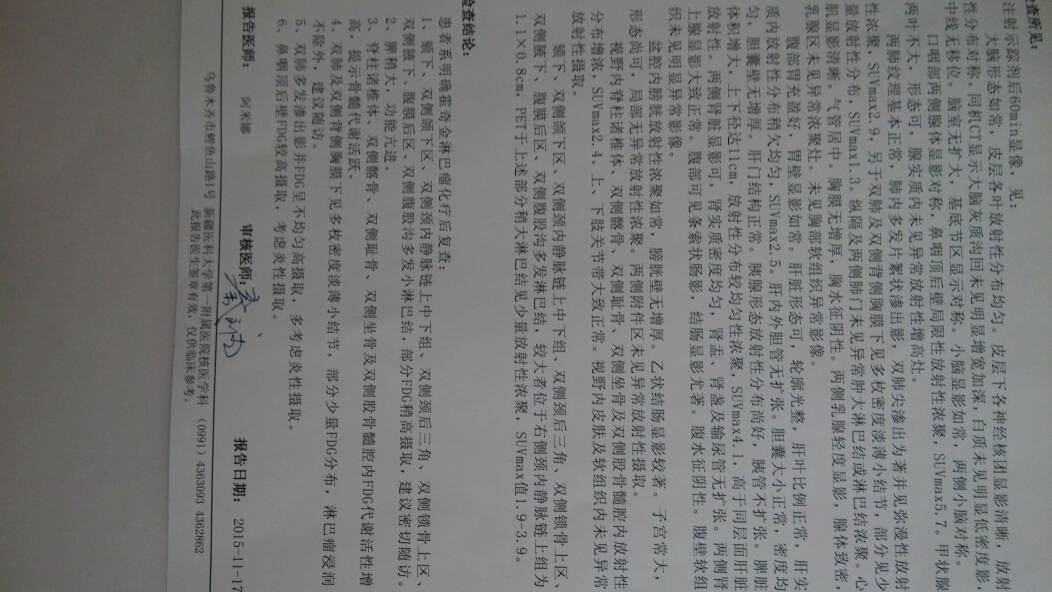 查所见：
注射示踪剂后60min显像，见：
大脑形态如常，皮层各叶放射性分布均匀。皮层下各神经核团显影清晰，放射
性分布对称。同机CT显示大脑灰质沟回未见明显增宽加深，白质未见明显低密度影，
中线无移位。脑室无扩大，基底节区显示对称。小脑显影如常，两侧小脑对称。
口咽部两侧腺体显影对称，鼻咽顶后壁局限性放射性浓聚，SUVmax5.7。甲状腺
两叶不大，形态可，腺实质内未见异常放射性增高灶。
两肺纹理基本正常，肺内多发片絮状渗出影，双肺尖渗出为著并见弥漫性放射
性浓聚，SUVmax2.9，另于双肺及双侧背侧胸膜下见多枚密度淡薄小结节，部分见少
量放射性分布，SUVmax1.3。纵隔及两侧肺门未见异常肿大淋巴结或淋巴结浓聚。心
肌显影清晰。气管居中。胸膜无增厚，胸水征阴性。两侧乳腺轻度显影，腺体致密，
乳腺区未见异常浓聚灶。未见胸部软组织异常影像。
腹部胃充盈好，胃壁显影如常。肝脏形态可，轮廓光整，肝叶比例正常，肝实
质内放射性分布稍欠均匀，SUVmax2.5。肝内外胆管无扩张。胆囊大小正常，密度均
匀，胆囊壁无增厚。肝门结构正常。胰腺形态放射性分布尚好，胰管不扩张。脾脏
体积增大，上下径达11cm，放射性分布较均匀性浓聚，SUVmax4.1，高于同层面肝脏
放射性。两侧肾脏显影可，肾实质密度均匀，肾盂、肾盏及输尿管无扩张。两侧肾
上腺显影大致正常，腹部可见条索状肠影，结肠显影尤者。腹水征阴性。腹壁软组
织未见明显异常影像。
盆腔内膀胱放射性浓聚如常，膀胱壁无增厚。乙状结肠显影较著。子宫常大，
形态尚可，局部无异常放射性浓聚。两侧附件区未见异常放射性摄取。
视野内脊柱诸椎体、双侧髂骨、双侧耻骨、双侧坐骨及双侧股骨髓腔内放射性
分布增浓，SUVmax2.4。上、下肢关节带大致正常。视野内皮肤及软组织内未见异常
放射性摄取。
颏下、双侧颌下区、双侧颈内静脉链上中下组、双侧颈后三角、双侧锁骨上区、
双侧腋下、腹膜后区、双侧腹股沟多发淋巴结，较大者位于右侧颈内静脉链上组为
1.1×0.8cm，PET于上述部分稍大淋巴结见少量放射性浓聚，SUVmax值1.9-3.9。
检查结论：
患者系明确霍奇金淋巴瘤化疗后复查：
1、颏下、双侧颌下区、双侧颈内静脉链上中下组、双侧颈后三角、双侧锁骨上区、
双侧腋下、腹膜后区、双侧腹股沟多发小淋巴结，部分FDG稍高摄取，建议密切随访。
2、脾稍大，功能亢进。
3、脊柱诸椎体、双侧髂骨、双侧耻骨、双侧坐骨及双侧股骨髓腔内FDG代谢活性增
高，提示骨髓代谢活跃。
4、双肺及双侧背侧胸膜下见多枚密度淡薄小结节，部分少量FDG分布，淋巴瘤浸润
不除外，建议随访。
5、双肺多发渗出影并FDG呈不均匀高摄取，多考虑炎性摄取。
6、鼻咽顶后壁FDG较高摄取，考虑炎性摄取。
报告医师： 阿米娜 审核医师： 报告日期： 2015-11-17
乌鲁木齐市鲤鱼山路1号 新疆医科大学第一附属医院核医学科 (0991) 4363093 4362862
此报告医生签章有效，仅供临床参考。